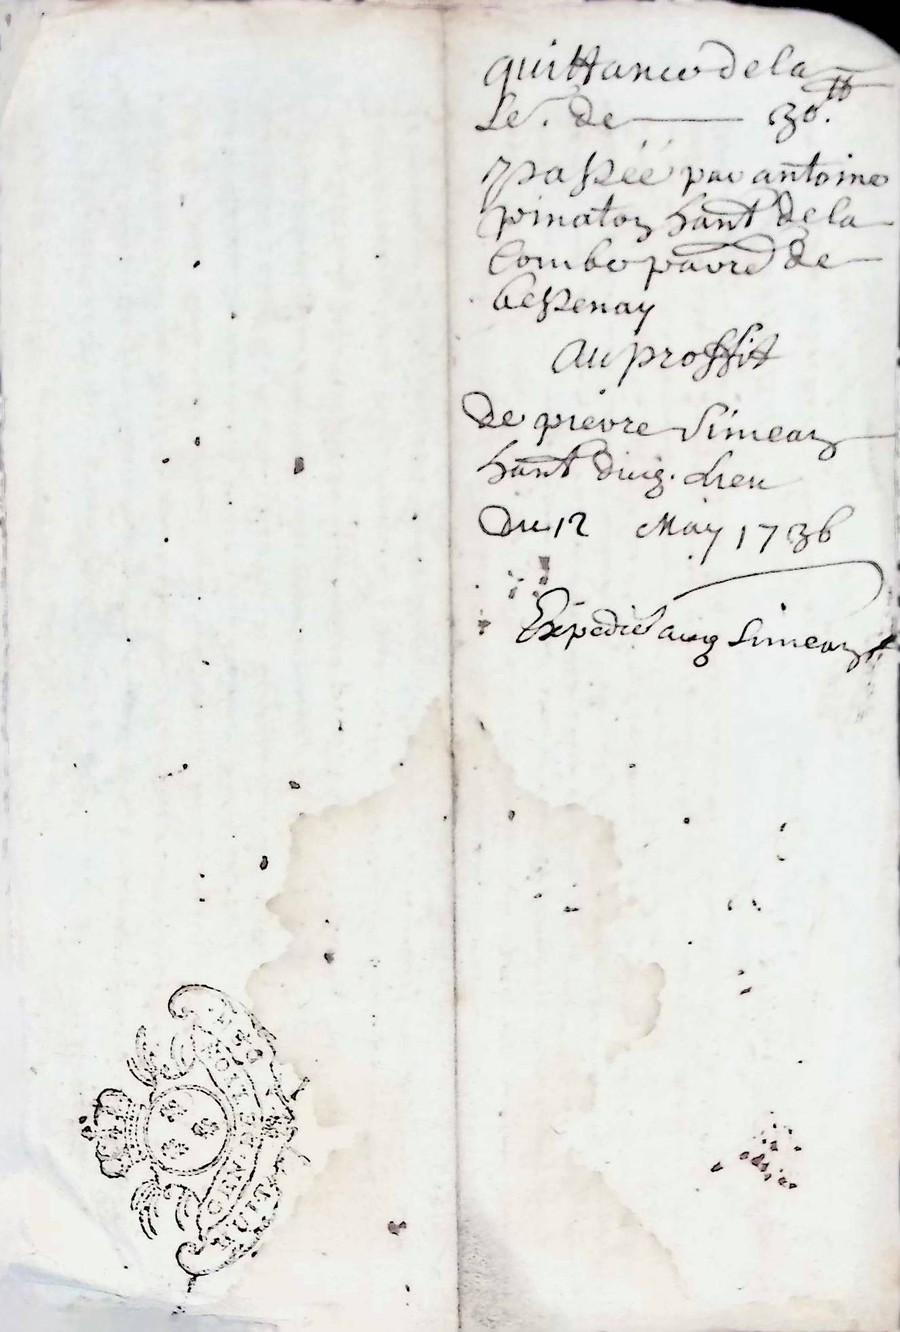 quittance de la
Se. de 30.tt
passéé par antoine
pinaton hant de la
Combe parre de
bessenay
Au proffit
De pierre Simean
hant dud. lieu
Du 12 May 1736
Expedié aud Simean
GEN. DE LYON
HUIT